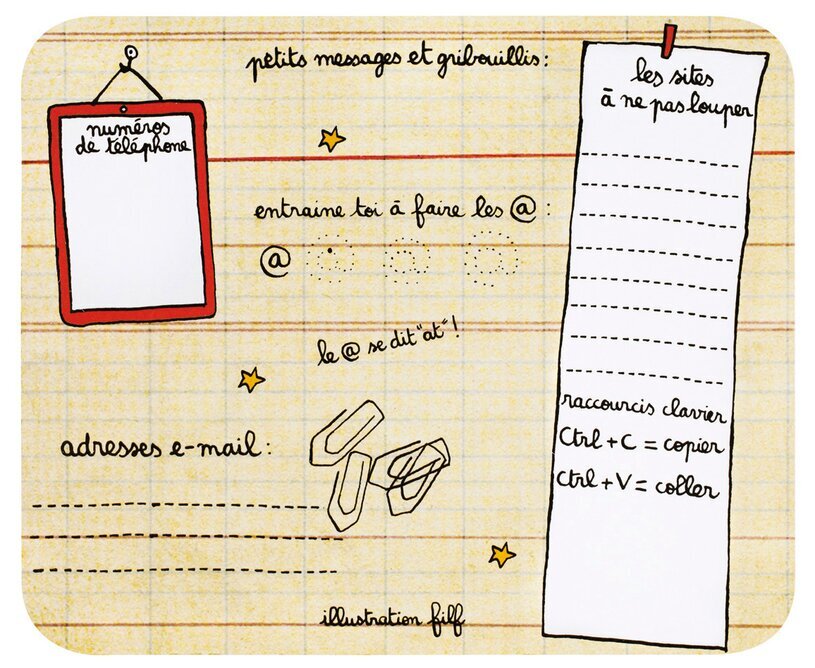 petits messages et gribouillis :
numéros
de téléphone
les sites
à ne pas louper
entraine toi à faire les @ :
@
le @ se dit "at" !
adresses e-mail :
raccourcis clavier
Ctrl + C = copier
Ctrl + V = coller
illustration filf